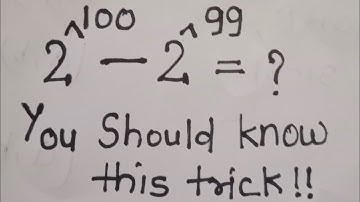 2^100 - 2^99 = ?
You Should know
this trick!!